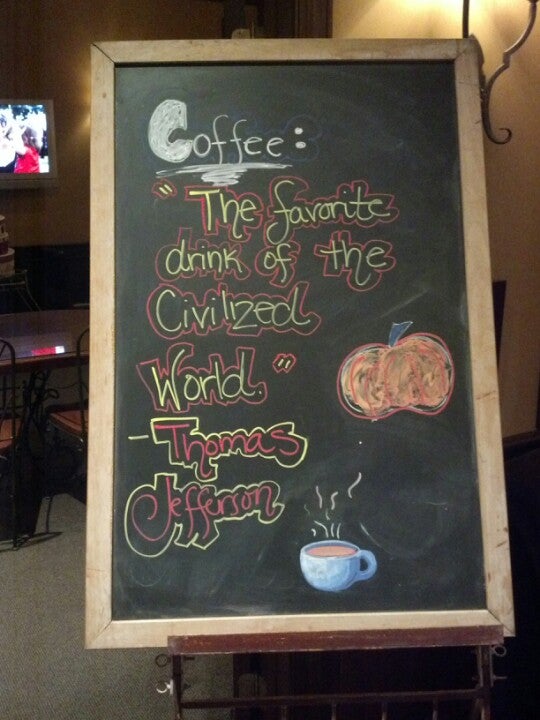 Coffee:
"The favorite
drink of the
Civilized
World."
-Thomas
Jefferson